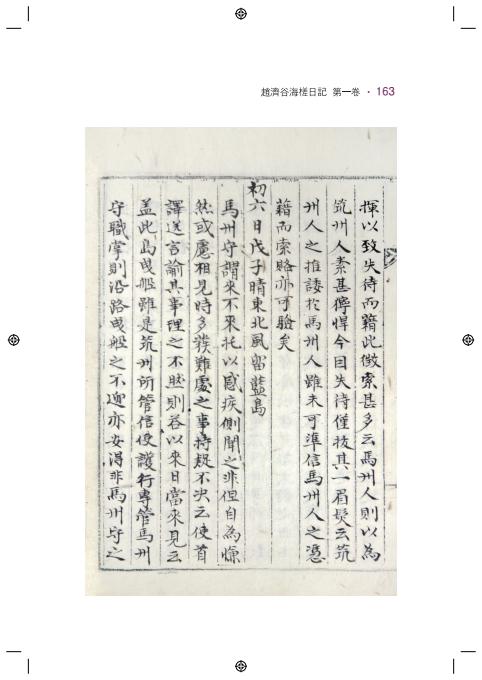 趙濟谷海槎日記 第一卷 · 163
揮以致失待而籍此徵索甚多云馬州人則以爲
筑州人素甚獰悍今因失待僅拔其一眉髮云筑
州人之推諉於馬州人雖未可準信馬州人之憑
籍而索賂亦可驗矣
初六日戊子晴東北風留藍島
馬州守謂來不來托以感疾側聞之非但自爲慄
然或慮相見時多難處之事持疑不決云使首
譯送言諭其事理之不然則答以來日當來見云
盖此島曳船雖是筑州所管信使護行專管馬州
守職掌則沿路曳船之不迎亦安得非馬州守之